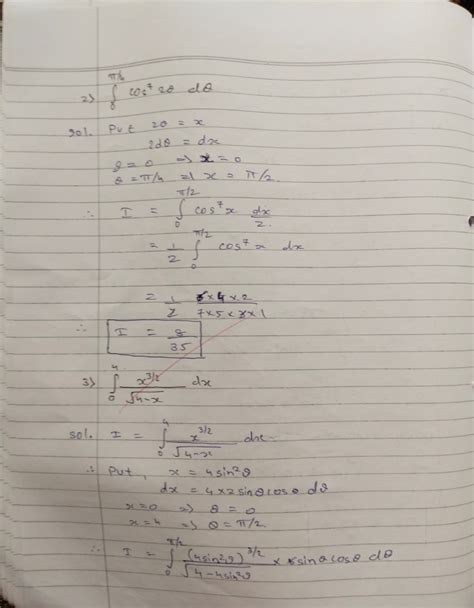 2) ∫₀^{π/4} cos⁷ 2θ dθ
sol. Put 2θ = x
2dθ = dx
θ = 0 ⇒ x = 0
θ = π/4 ⇒ x = π/2.
∴ I = ∫₀^{π/2} cos⁷x dx/2.
= 1/2 ∫₀^{π/2} cos⁷x dx
= 1/2 6×4×2 / 7×5×3×1
∴ I = 8/35
3) ∫₀⁴ x^{3/2}/√(4-x) dx
sol. I = ∫₀⁴ x^{3/2}/√(4-x) dx.
∴ Put, x = 4sin²θ
dx = 4×2sinθcosθ dθ
x=0 ⇒ θ = 0
x=4 ⇒ θ = π/2.
∴ I = ∫₀^{π/2} (4sin²θ)^{3/2}/√(4-4sin²θ) × sinθcosθ dθ